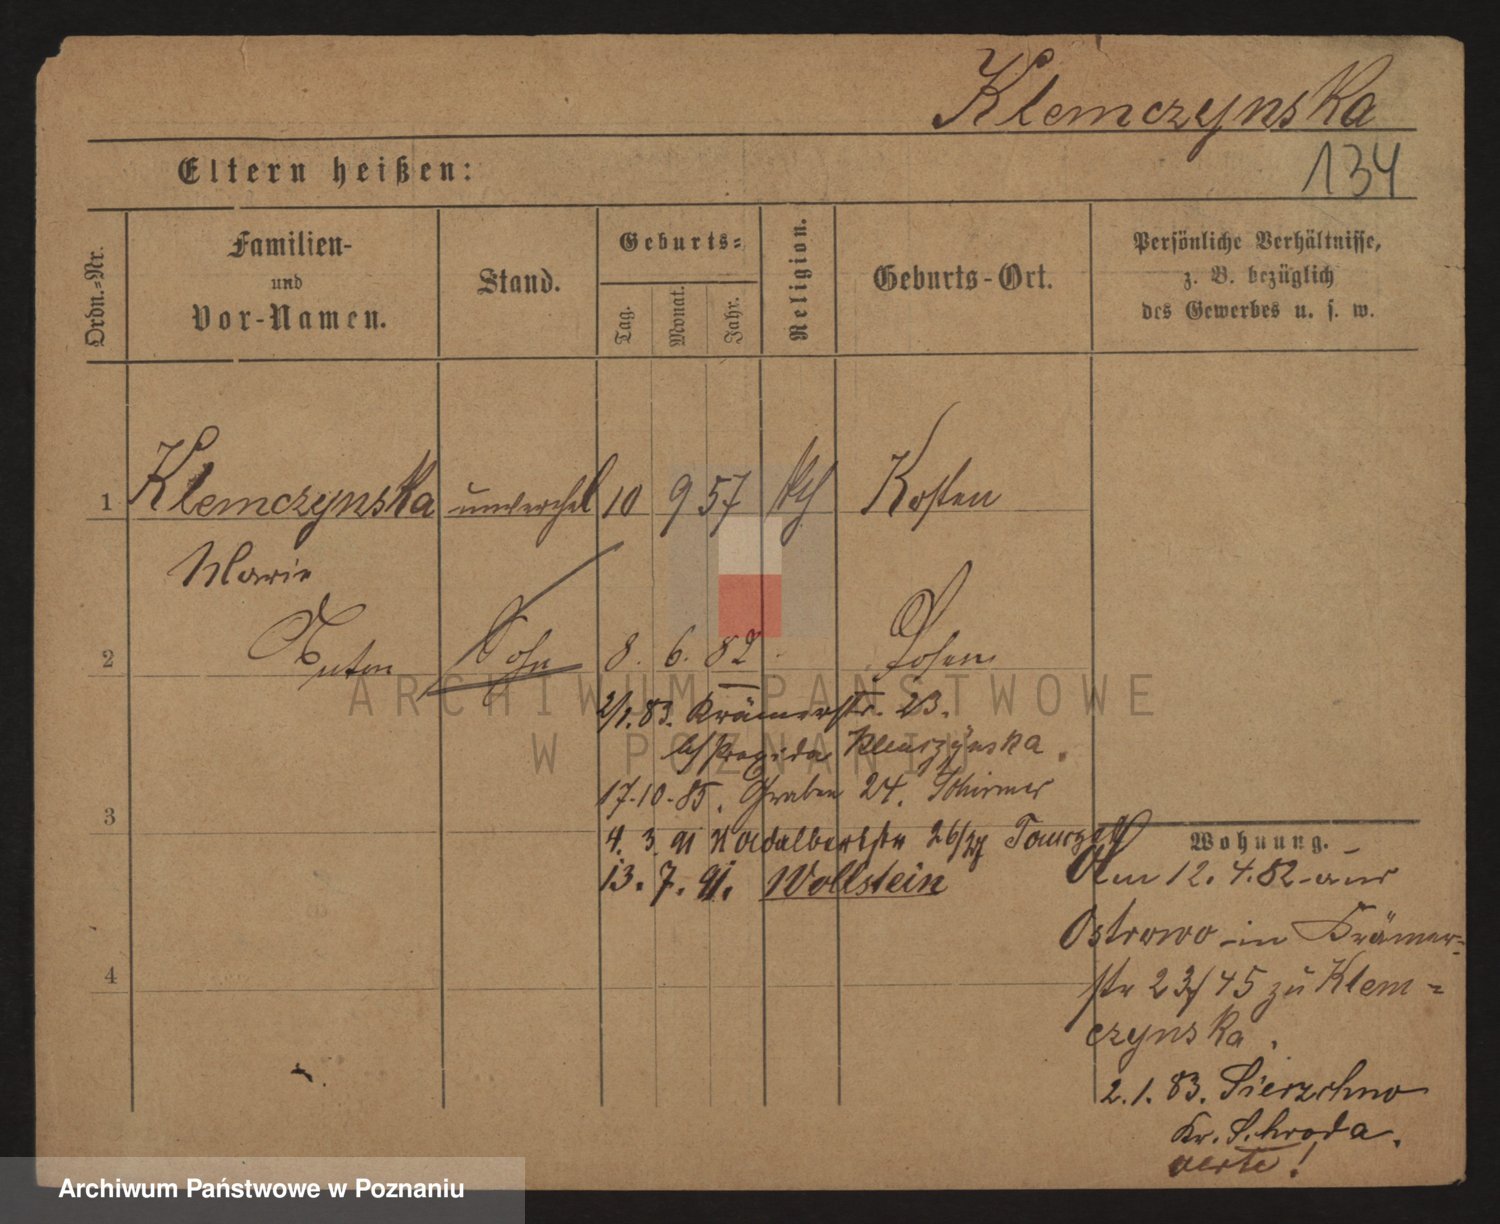 Klemczynska
134
Eltern heißen:
Ordn.-Nr.
Familien-
und
Vor-Namen.
Stand.
Geburts-
Tag.
Monat.
Jahr.
Religion.
Geburts-Ort.
Persönliche Verhältnisse,
z. B. bezüglich
des Gewerbes u. s. w.
1 Klemczynska unverehel 10 9 57 kth Kosten
Marie
2 Anton Sohn 8. 6. 82 Posen
2/1. 83. Krämerstr. 23.
Klemczynska
17-10-85. Graben 24. Schirmer
3
4. 3. 91 Adalbertstr 26/27
13. 7. 91. Wollstein
4
Wohnung.
Am 12. 4. 82 aus
Ostrowo in Krämer-
str 23/45 zu Klem-
czynska.
2. 1. 83.
Kr. Schroda.
ARCHIWUM PAŃSTWOWE
W POZNANIU
Archiwum Państwowe w Poznaniu